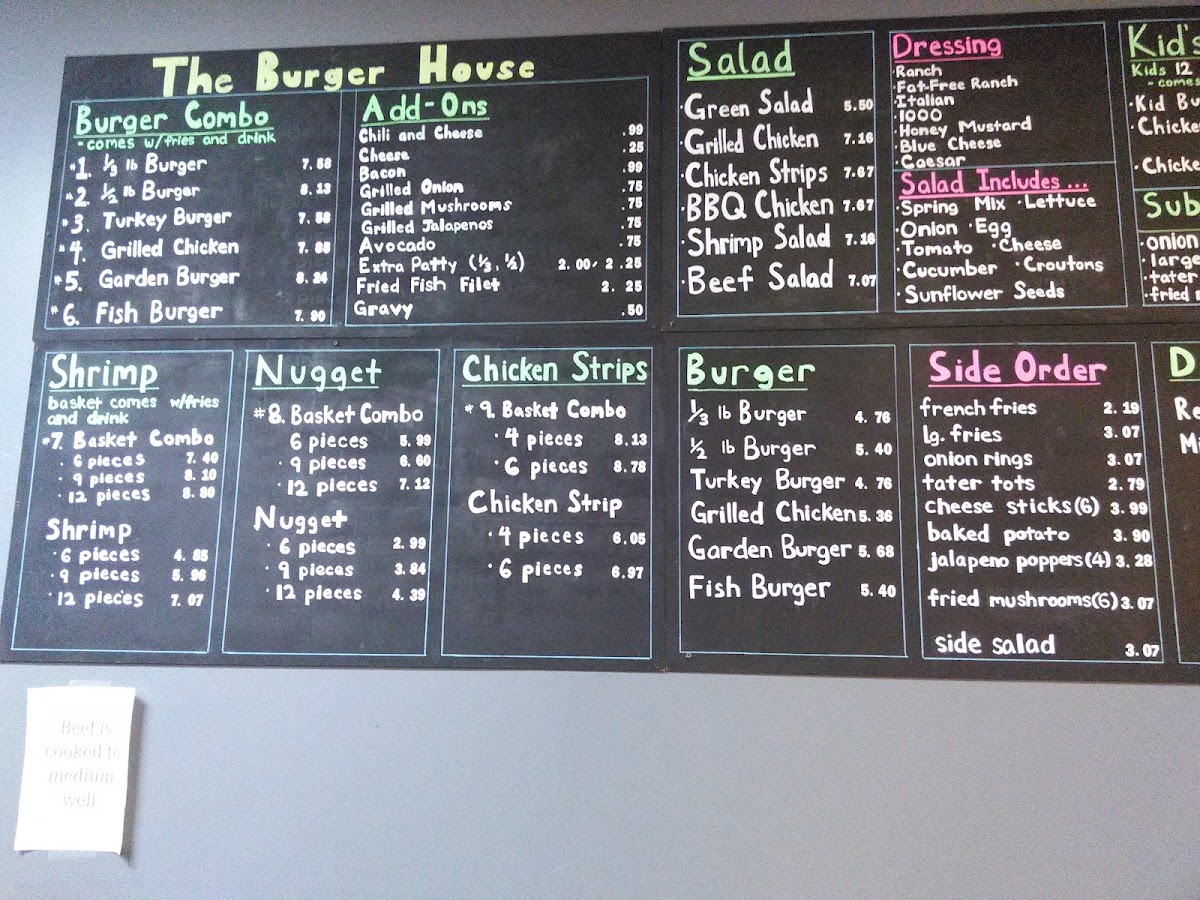 The Burger House
Burger Combo
- comes w/fries and drink
#1. 1/3 lb Burger 7.58
#2. 1/2 lb Burger 8.13
#3. Turkey Burger 7.58
#4. Grilled Chicken 7.88
#5. Garden Burger 8.24
#6. Fish Burger 7.90
Add-Ons
Chili and Cheese .99
Cheese .25
Bacon .99
Grilled Onion .75
Grilled Mushrooms .75
Grilled Jalapenos .75
Avocado .75
Extra Patty (1/3, 1/2) 2.00/2.25
Fried Fish Filet 2.25
Gravy .50
Salad
· Green Salad 5.50
· Grilled Chicken 7.16
· Chicken Strips 7.67
· BBQ Chicken 7.67
· Shrimp Salad 7.16
· Beef Salad 7.07
Dressing
· Ranch
· Fat-Free Ranch
· Italian
· 1000
· Honey Mustard
· Blue Cheese
· Caesar
Salad Includes...
· Spring Mix · Lettuce
· Onion · Egg
· Tomato · Cheese
· Cucumber · Croutons
· Sunflower Seeds
Kid's
Kids 12
- come
· Kid Bu
· Chicke
· Chicke
Sub
· onion
· large
· tater
· fried
Shrimp
basket comes w/fries
and drink
#7. Basket Combo
· 6 pieces 7.40
· 9 pieces 8.10
· 12 pieces 8.80
Shrimp
· 6 pieces 4.85
· 9 pieces 5.96
· 12 pieces 7.07
Nugget
#8. Basket Combo
6 pieces 5.99
· 9 pieces 6.60
· 12 pieces 7.12
Nugget
· 6 pieces 2.99
· 9 pieces 3.84
· 12 pieces 4.39
Chicken Strips
#9. Basket Combo
· 4 pieces 8.13
· 6 pieces 8.78
Chicken Strip
· 4 pieces 6.05
· 6 pieces 6.97
Burger
1/3 lb Burger 4.76
1/2 lb Burger 5.40
Turkey Burger 4.76
Grilled Chicken 5.36
Garden Burger 5.68
Fish Burger 5.40
Side Order
french fries 2.19
lg. fries 3.07
onion rings 3.07
tater tots 2.79
cheese sticks(6) 3.99
baked potato 3.90
jalapeno poppers(4) 3.28
fried mushrooms(6) 3.07
side salad 3.07
D
Re
Mi
Beef is
cooked to
medium
well